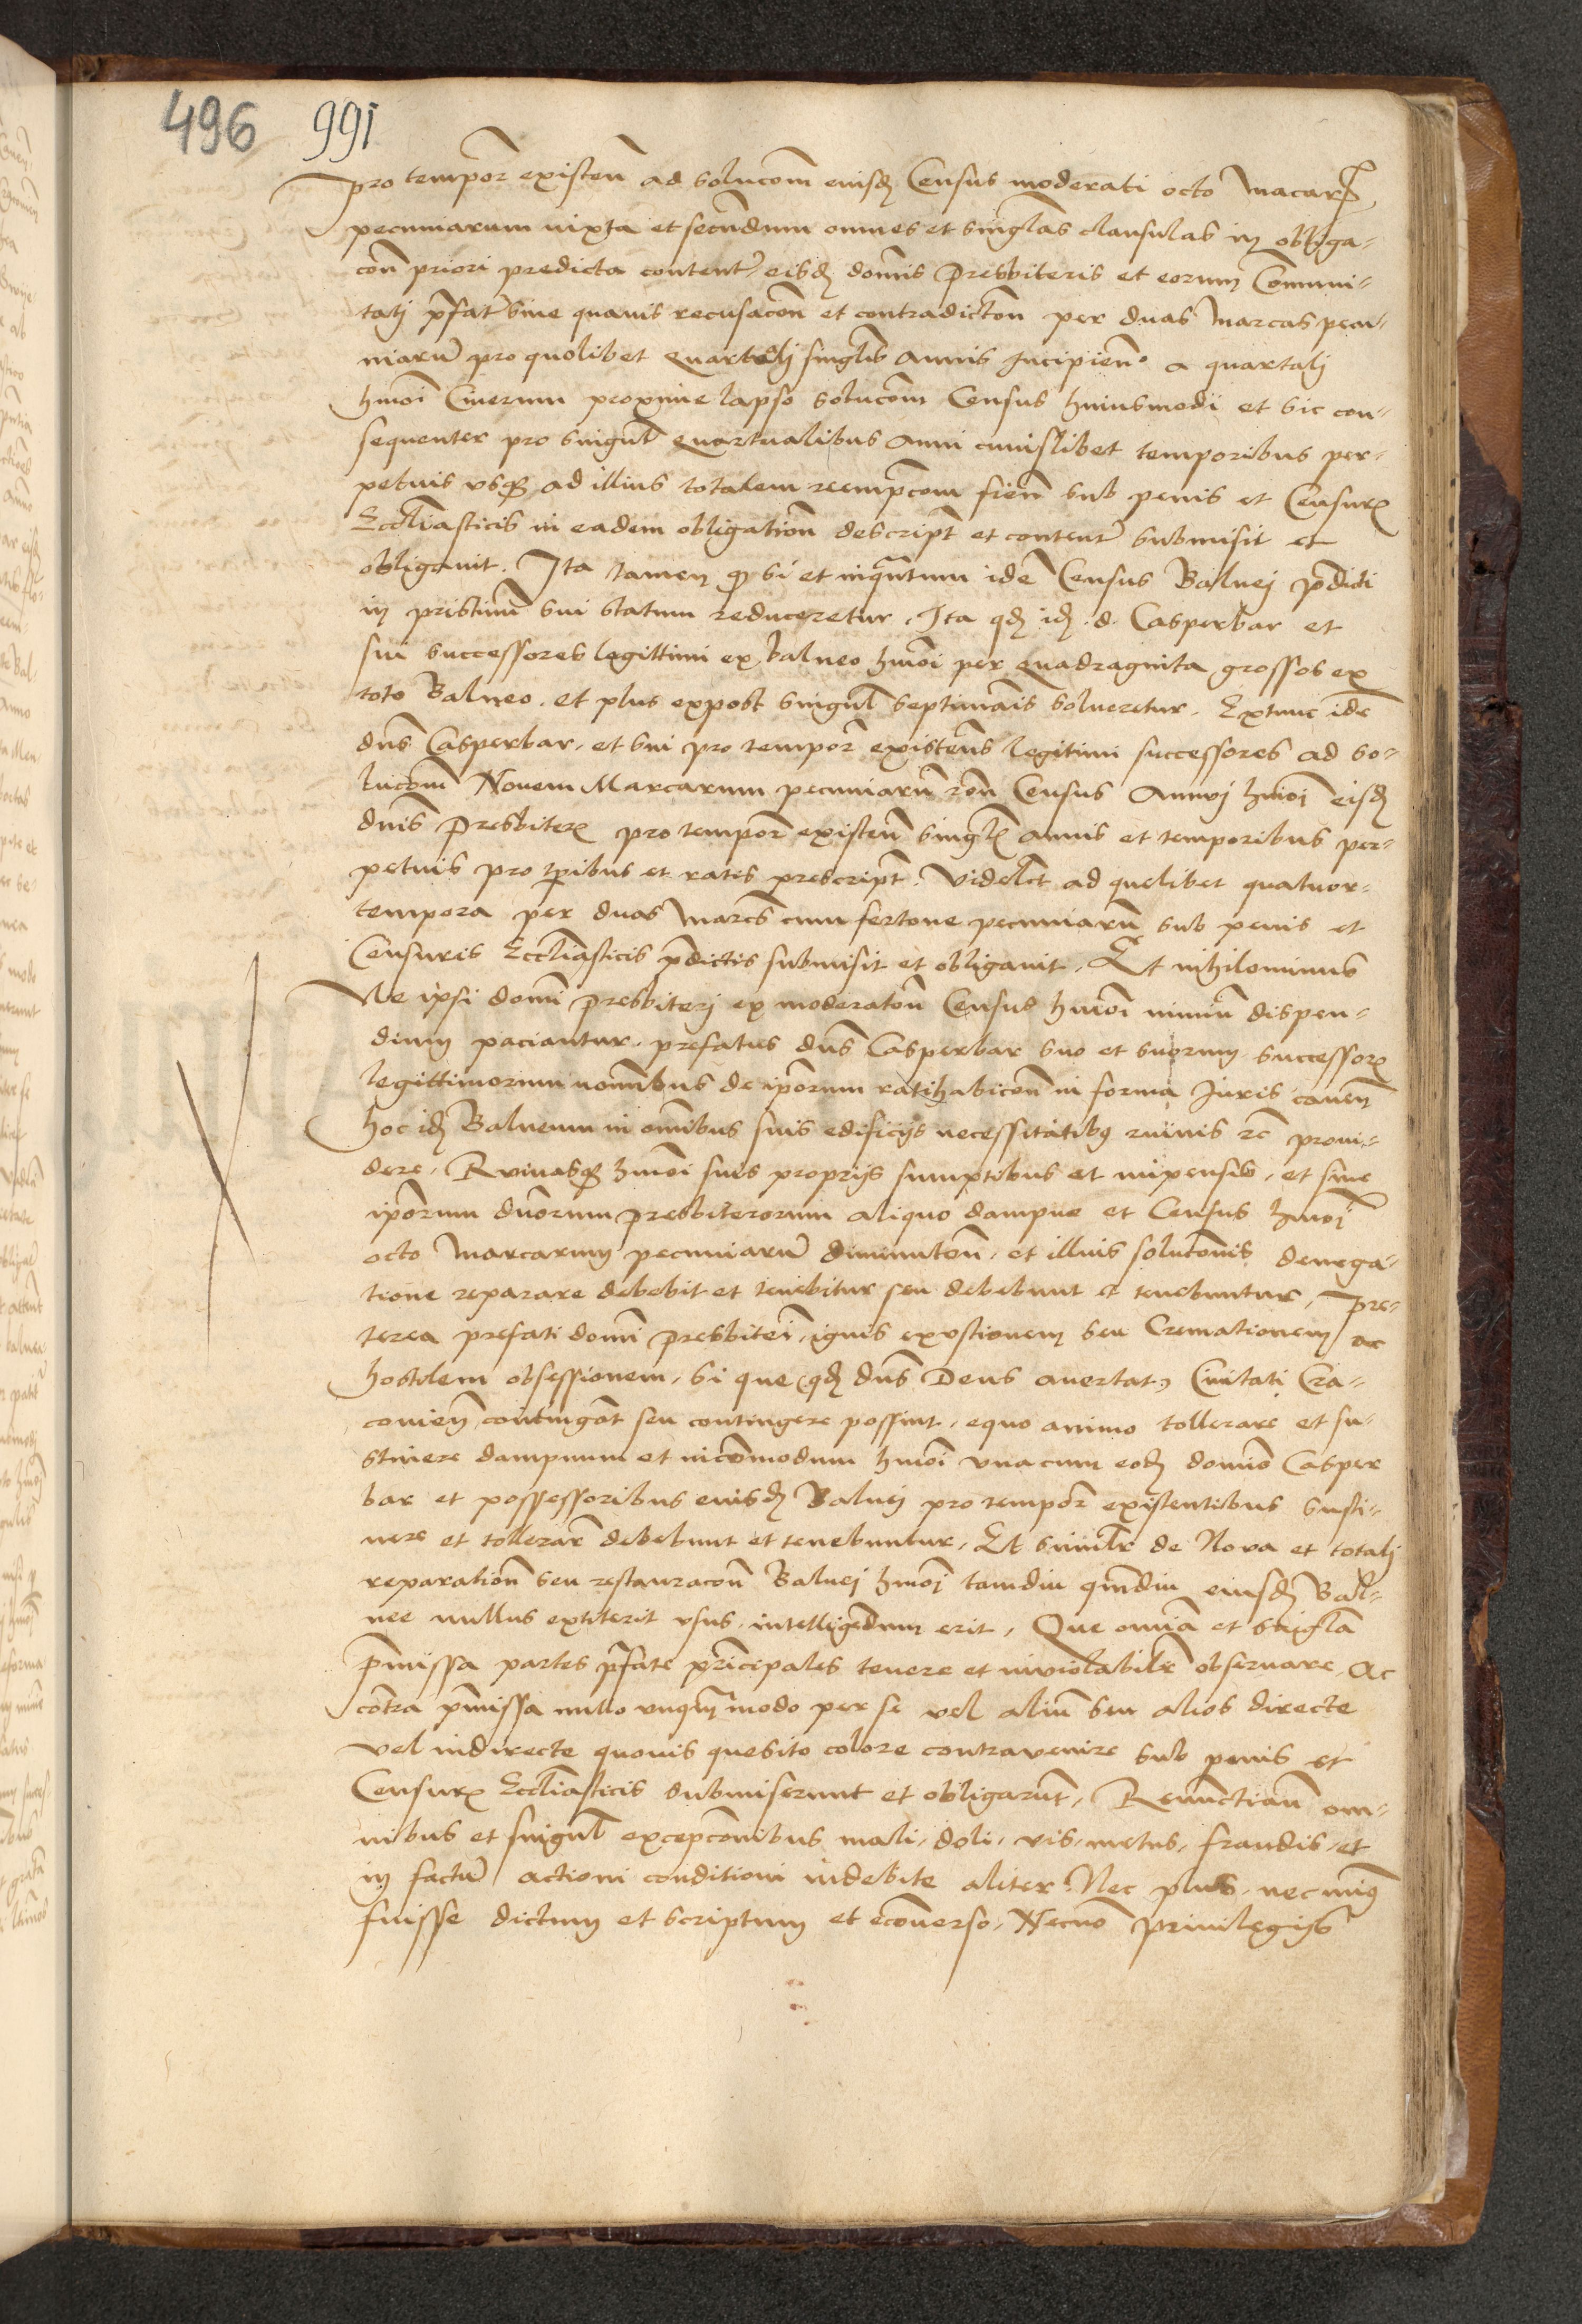 496 991
pro tempor̄ existen̄ ad solucōm eiusd̄ Census moderati octo Macar₎
pecuniarum iuxta et secūndum omnes et singlas clausulas in obliga-
con̄ priori predicta content̄, eisd̄ domīs presbiteris et eorum Commui-
tatj p̄fat̄ sine quauis recusacōn et contradictōn per duas Marcas pecu-
niarū pro quolibet quartalj singlis Annis Incipien̄ a quartalj
hmōi Cinerum proxime lapso solucōm Census huiusmodi et sic con-
sequenter pro singul̄ quartualibus Anni cuiuslibet temporibus per-
petuis vsq̄ ad illius totalem reempcōm fien̄ sub penis et Censur₎
Eccl̄iasticis in eadem obligation̄ descript̄ et content̄ submisit et
obligauit. Ita tamen q̄ si et inquantum idē Census Balnej p̄dicti
in pristinū sui statum reduceretur, Ita qd̄ id̄ .d. Casperbar et
sui successores legittimi ex balneo hmōi per quadraginta grossos ex
toto Balneo. et plus expost singul̄ septimanis solueretur. Extunc idē
dn̄s Casperbar, et sui pro tempor̄ existen̄s legitimi successores ad so-
lucōm Novem Marcarum pecuniarū rōn Census Annuj hmōi eisd̄
dn̄is Presbiter₎ pro tempor̄ existen̄ singl̄₎ annis et temporibus per-
petuis pro tp̄ribus et ratis prescript̄. Videlt̄ ad quelibet quatuor-
tempora per duas Marcās cum fertone pecuniarū sub penis et
Censuris Eccl̄iasticis p̄dictis submisit et obligauit. Et nihilominus
Ne ipsi domī presbiterj ex moderatōn Census hmōi nimiū dispen-
dium paciantur. prefatus dn̄s Casperbar suo et suorum successor₎
legittimorum nomībus de ip̄orum ratihabicōn in forma Iuris cauen̄
hoc id̄ Balneum in om̄ibus suis edificijs necessitatibꝫ ruinis rc̄ proui-
dere, Ruinasq̄ hmōi suis proprijs sumptibus et impensis, et sine
ip̄orum dn̄orum presbiterorum aliquo dampno et Census hmōi
octo Marcarum pecuniarū diminutōn, et illius solutōnis denega-
tione reparare debebit et tenebitur seu debebunt et tenebuntur, Pre-
terea prefati domī presbiterī, ignis exvstionem seu Cremationem ac
hostilem obsessionem, si que (qd̄ dn̄s Deus auertat) Ciuitati Cra-
couien̄ contingāt seu contingere possint, equo animo tollerare et su-
stinere dampnum et incōmodum hmōi vna cum eod̄ domīo Casper
bar et possessoribus eiusd̄ Balnej pro tempor̄ existentibus susti-
nere et tollerar̄ debebunt et tenebuntur, Et simīlr de Nova et totalj
reparation̄ seu restauracōn Balnej hmōj tamdiu qm̄diu eiusd̄ Bal-
nee nullus extiterit vsus, intelligēdum erit, Que omīa et singl̄a
p̄missa partes p̄fate pr̄incipales tenere et inviolabilr̄ obseruare, Ac
cōtra p̄missa nullo vnqm̄ modo per se vel aliū seu alios directe
vel indirecte quouis quesito colore contravenire sub penis et
Censur₎ Eccl̄iasticis submiserunt et obligarūt, Renūctian̄ om-
nibus et singul̄ excepcōnibus mali, doli, vis, metus, fraudis, et
in factū actioni conditioni indebite aliter, Nec plus, nec minꝫ
fuisse dictum et scriptum et ecōuerso, Necnō priuilegijs